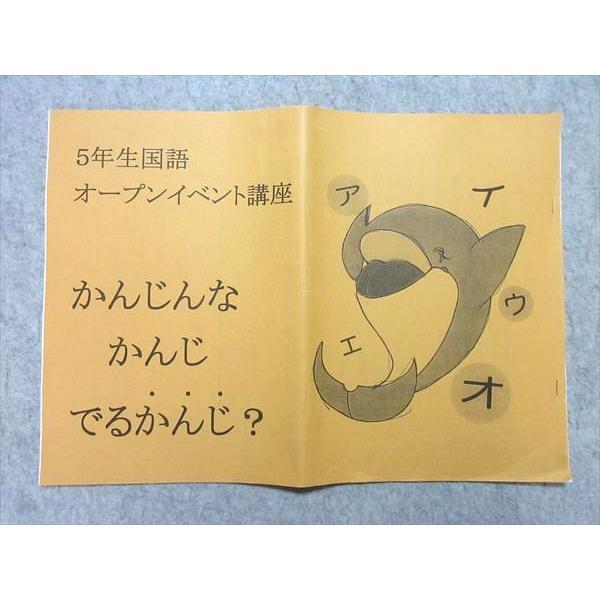 5年生国語
オープンイベント講座
かんじんな
かんじ
でるかんじ?
ア
イ
ウ
エ
オ